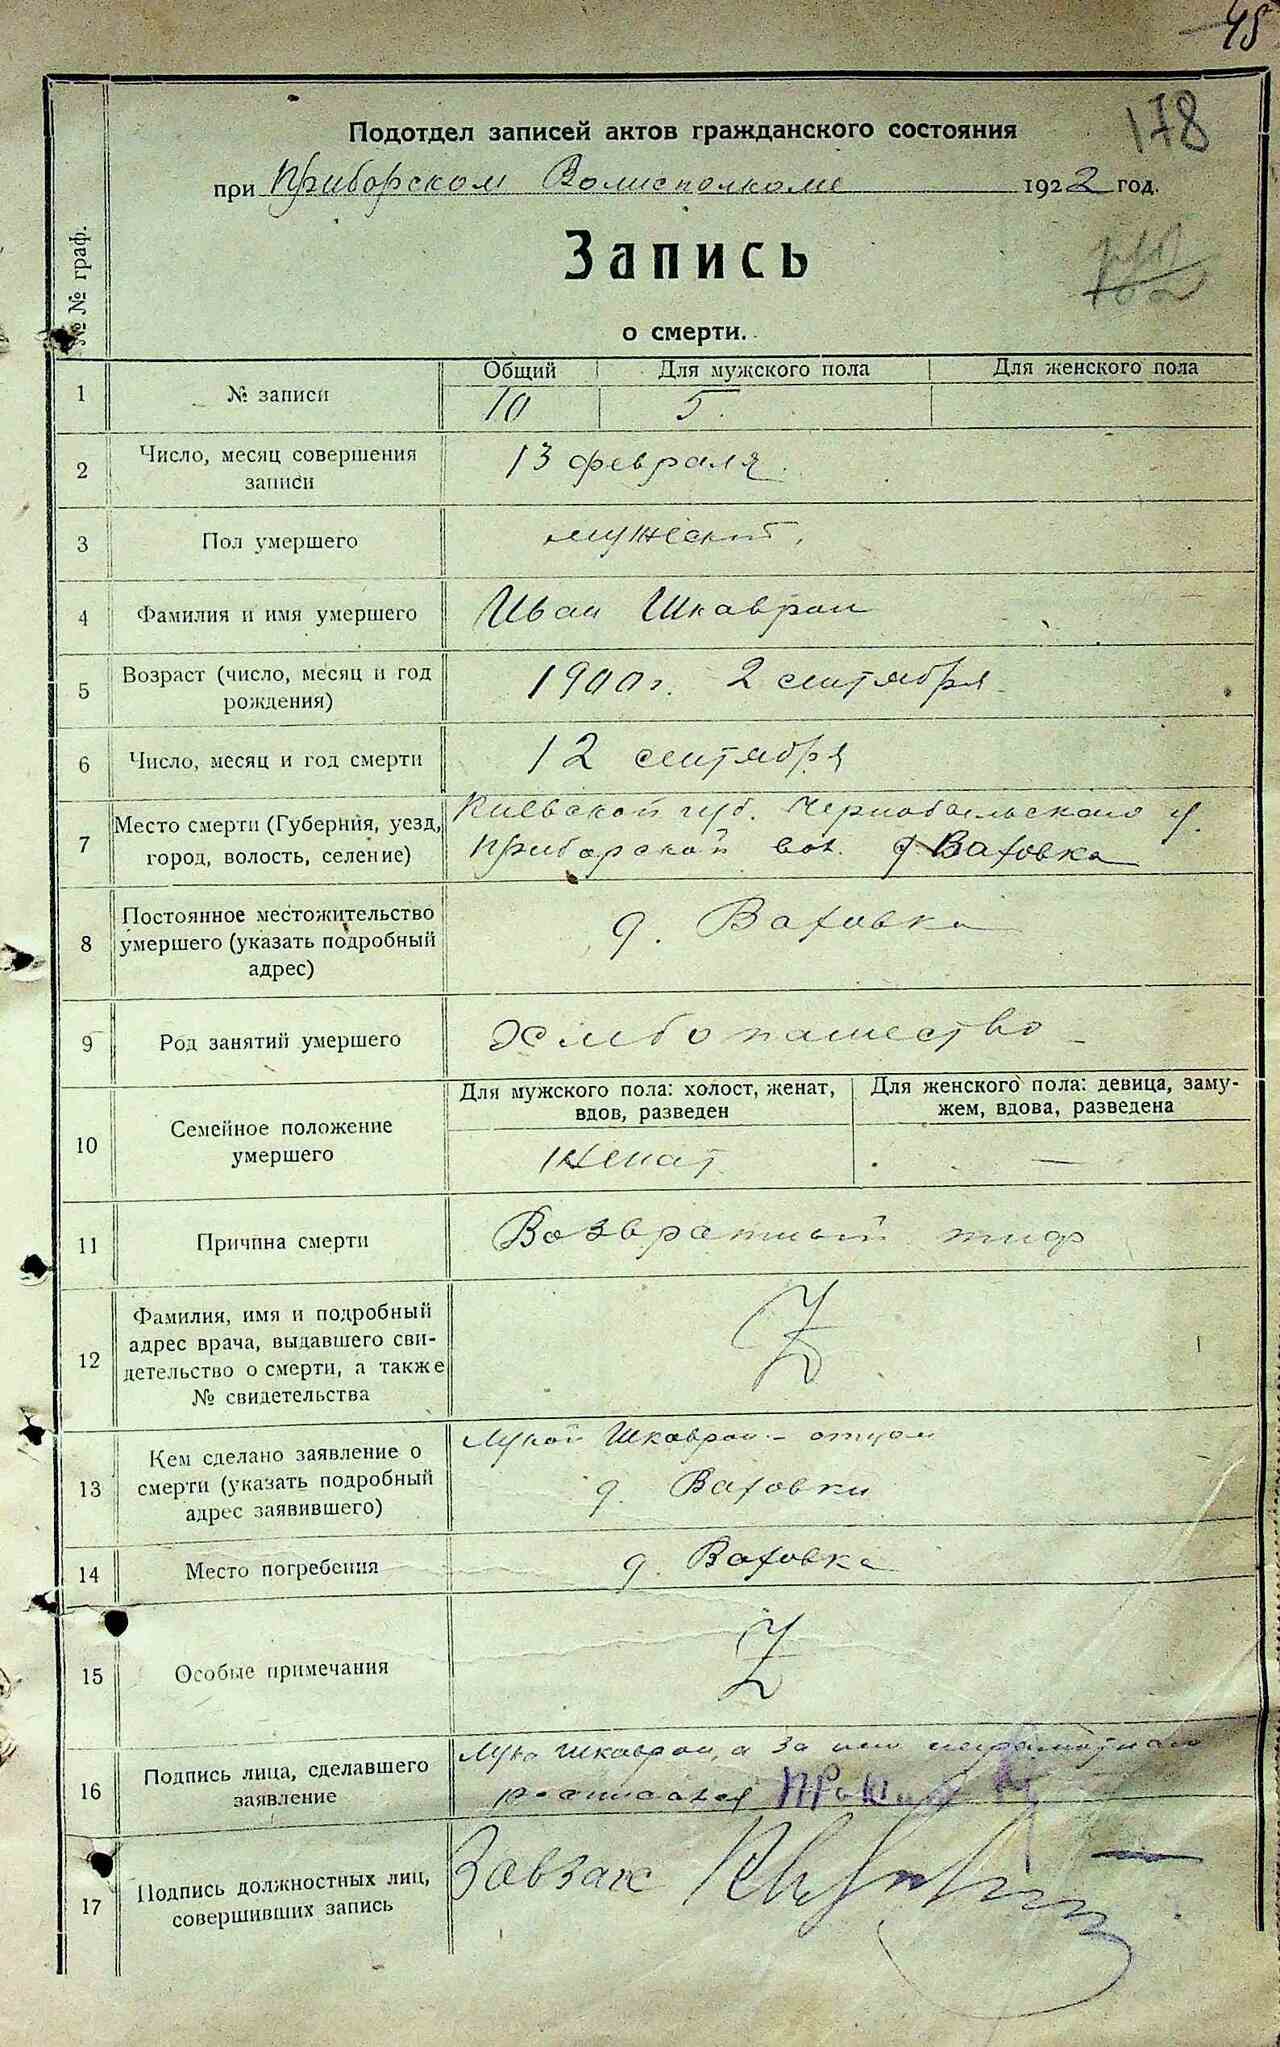 45
178
Подотдел записей актов гражданского состояния
при Приборском Волисполкоме 1922 год.
№№ граф.
Запись
о смерти.
Общий Для мужского пола Для женского пола
1 № записи 10 5.
2 Число, месяц совершения
записи
13 февраля.
3 Пол умершего мужеский.
4 Фамилия и имя умершего Иван Шкаврон
5 Возраст (число, месяц и год
рождения)
1900 г. 2 сентября.
6 Число, месяц и год смерти 12 сентября
7 Место смерти (Губерния, уезд,
город, волость, селение)
Киевской губ. Чернобыльского у.
Приборской вол. д. Ваховка
8 Постоянное местожительство
умершего (указать подробный
адрес)
д. Ваховка
9 Род занятий умершего Хлебопашество
10 Семейное положение
умершего
Для мужского пола: холост, женат,
вдов, разведен
Для женского пола: девица, заму-
жем, вдова, разведена
женат —
11 Причина смерти Возвратный тиф
12 Фамилия, имя и подробный
адрес врача, выдавшего сви-
детельство о смерти, а также
№ свидетельства
Z
13 Кем сделано заявление о
смерти (указать подробный
адрес заявившего)
Лукой Шкаврон - отцом
д. Ваховки
14 Место погребения д. Ваховка
15 Особые примечания Z
16 Подпись лица, сделавшего
заявление
Лука Шкаврон, а за него неграмотного
росписался
17 Подпись должностных лиц,
совершивших запись
Завзагс